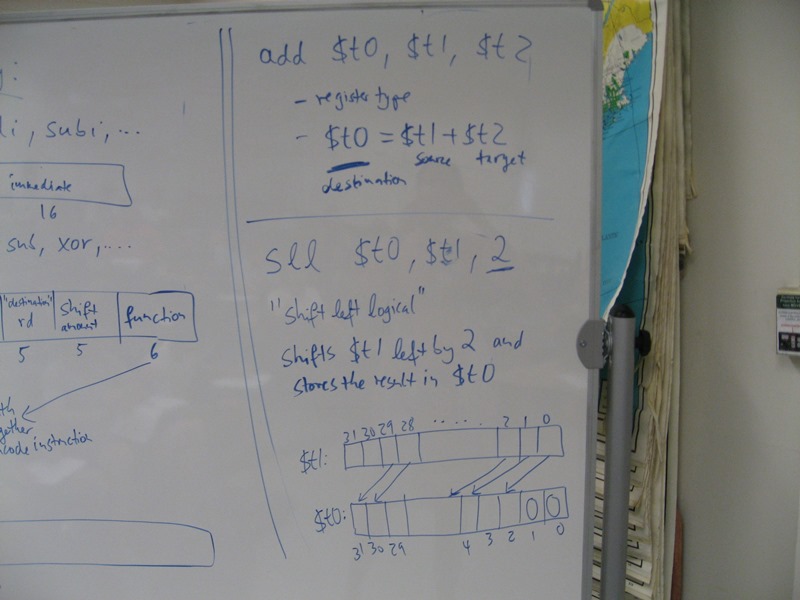 li, subi, ...
immediate
16
sub, xor, ....
"destination" shift function
rd amount
5 5 6
code instruction
add $t0, $t1, $t2
- register type
- $t0 = $t1 + $t2
source target
destination
sll $t0, $t1, 2
"shift left logical"
shifts $t1 left by 2 and
stores the result in $t0
31 30 29 28 ..... 2 1 0
$t1:
$t0: 0 0
31 30 29 4 3 2 1 0